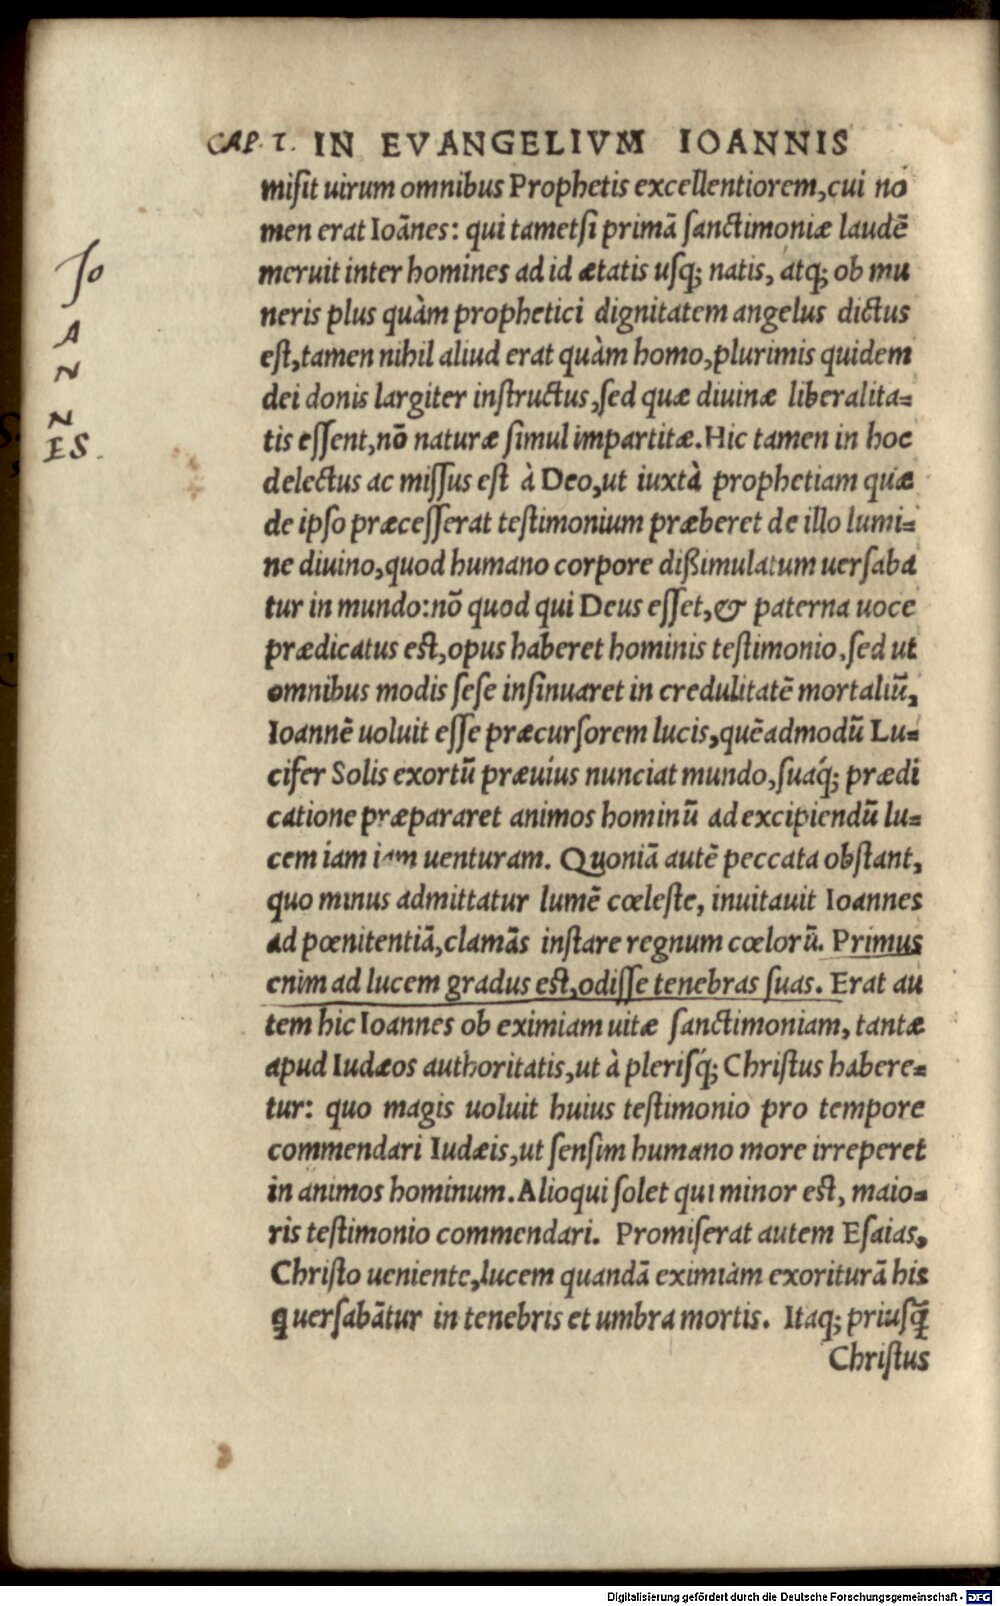 CAP. 1. IN EVANGELIVM IOANNIS
misit uirum omnibus Prophetis excellentiorem, cui no
men erat Ioānes: qui tametsi primā sanctimoniæ laudē
meruit inter homines ad id ætatis usq; natis, atq; ob mu
neris plus quàm prophetici dignitatem angelus dictus
est, tamen nihil aliud erat quàm homo, plurimis quidem
dei donis largiter instructus, sed quæ diuinæ liberalita=
tis essent, nō naturæ simul impartitæ. Hic tamen in hoc
delectus ac missus est à Deo, ut iuxtà prophetiam quæ
de ipso præcesserat testimonium præberet de illo lumi=
ne diuino, quod humano corpore dißimulatum uersaba
tur in mundo: nō quod qui Deus esset, & paterna uoce
prædicatus est, opus haberet hominis testimonio, sed ut
omnibus modis sese insinuaret in credulitatē mortaliū,
Ioannē uoluit esse præcursorem lucis, quēadmodū Lu=
cifer Solis exortū præuius nunciat mundo, suaq́; prædi
catione præpararet animos hominū ad excipiendū lu=
cem iam iam uenturam. Quoniā autē peccata obstant,
quo minus admittatur lumē cœleste, inuitauit Ioannes
ad pœnitentiā, clamās instare regnum cœlorū. Primus
enim ad lucem gradus est, odisse tenebras suas. Erat au
tem hic Ioannes ob eximiam uitæ sanctimoniam, tantæ
apud Iudæos authoritatis, ut à plerisq́; Christus habere=
tur: quo magis uoluit huius testimonio pro tempore
commendari Iudæis, ut sensim humano more irreperet
in animos hominum. Alioqui solet qui minor est, maio=
ris testimonio commendari. Promiserat autem Esaias,
Christo ueniente, lucem quandā eximiam exoriturā his
ꝗ uersabātur in tenebris et umbra mortis. Itaq; priusq̄
Christus
Jo
A
N
N
ES.
Digitalisierung gefördert durch die Deutsche Forschungsgemeinschaft - DFG